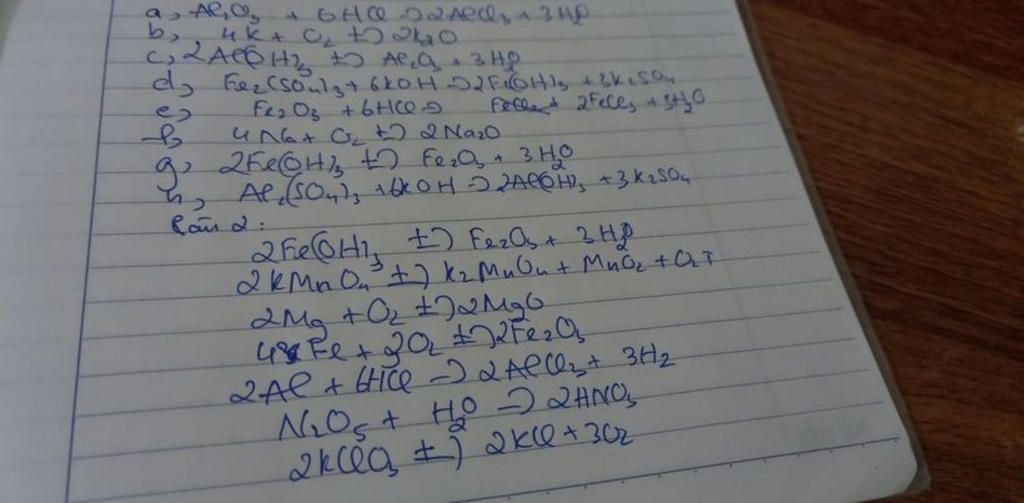 a, Al2O3 + 6HCl → 2AlCl3 + 3H2O
b, 4K + O2 t°→ 2K2O
c, 2Al(OH)3 t°→ Al2O3 + 3H2O
d, Fe2(SO4)3 + 6KOH → 2Fe(OH)3 + 3K2SO4
e, Fe2O3 + 6HCl → 2FeCl3 + 3H2O
f, 4Na + O2 t°→ 2Na2O
g, 2Fe(OH)3 t°→ Fe2O3 + 3H2O
h, Al2(SO4)3 + 6KOH → 2Al(OH)3 + 3K2SO4
Câu 2:
2Fe(OH)3 t°→ Fe2O3 + 3H2O
2KMnO4 t°→ K2MnO4 + MnO2 + O2↑
2Mg + O2 t°→ 2MgO
4Fe + 3O2 t°→ 2Fe2O3
2Al + 6HCl → 2AlCl3 + 3H2
N2O5 + H2O → 2HNO3
2KClO3 t°→ 2KCl + 3O2